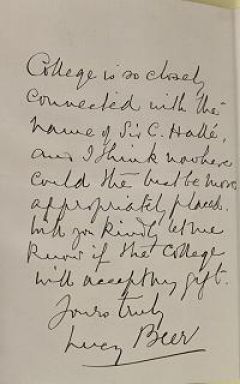 College is so closely
connected with the
name of Sir C. Hallé,
and I think nowhere
could the bust be more
appropriately placed.
Will you kindly let me
know if the College
will accept my gift.
Yours truly
Lucy Beer